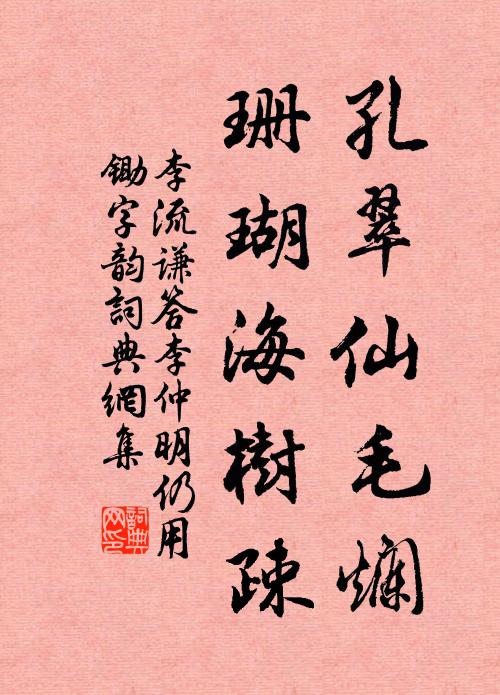 孔翠仙毛爛
珊瑚海樹疎
李流谦答李仲明仍用
鋤字韵詞典網集
詞典
网印